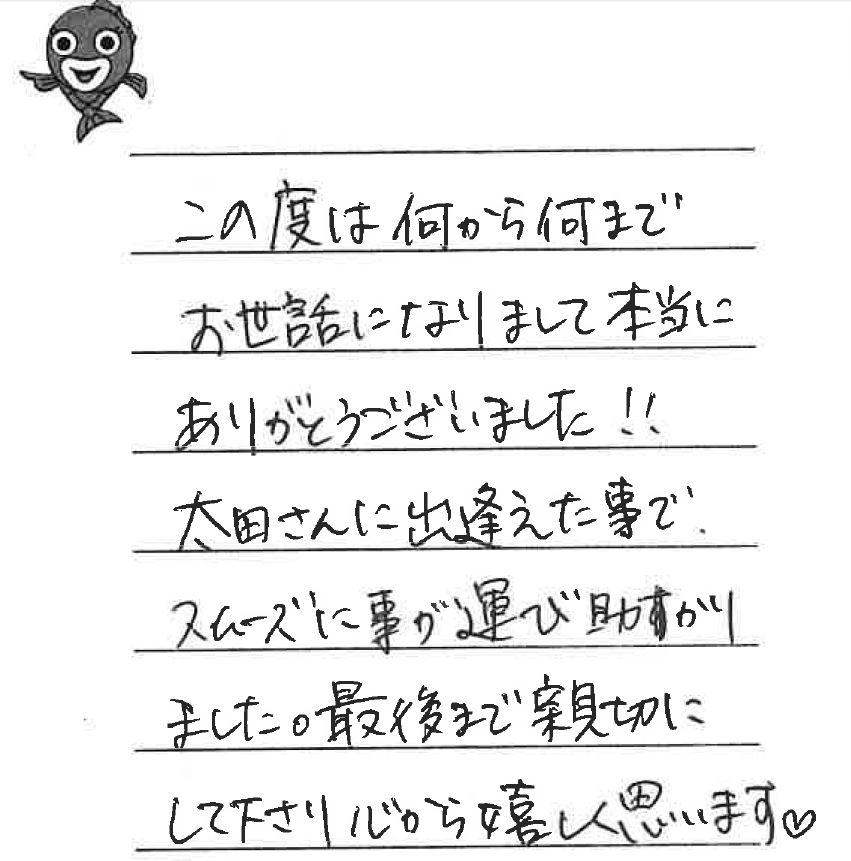 この度は何から何まで
お世話になりまして本当に
ありがとうございました!!
太田さんに出逢えた事で、
スムーズに事が運び助すかり
ました。最後まで親切に
して下さり心から嬉しく思います♡